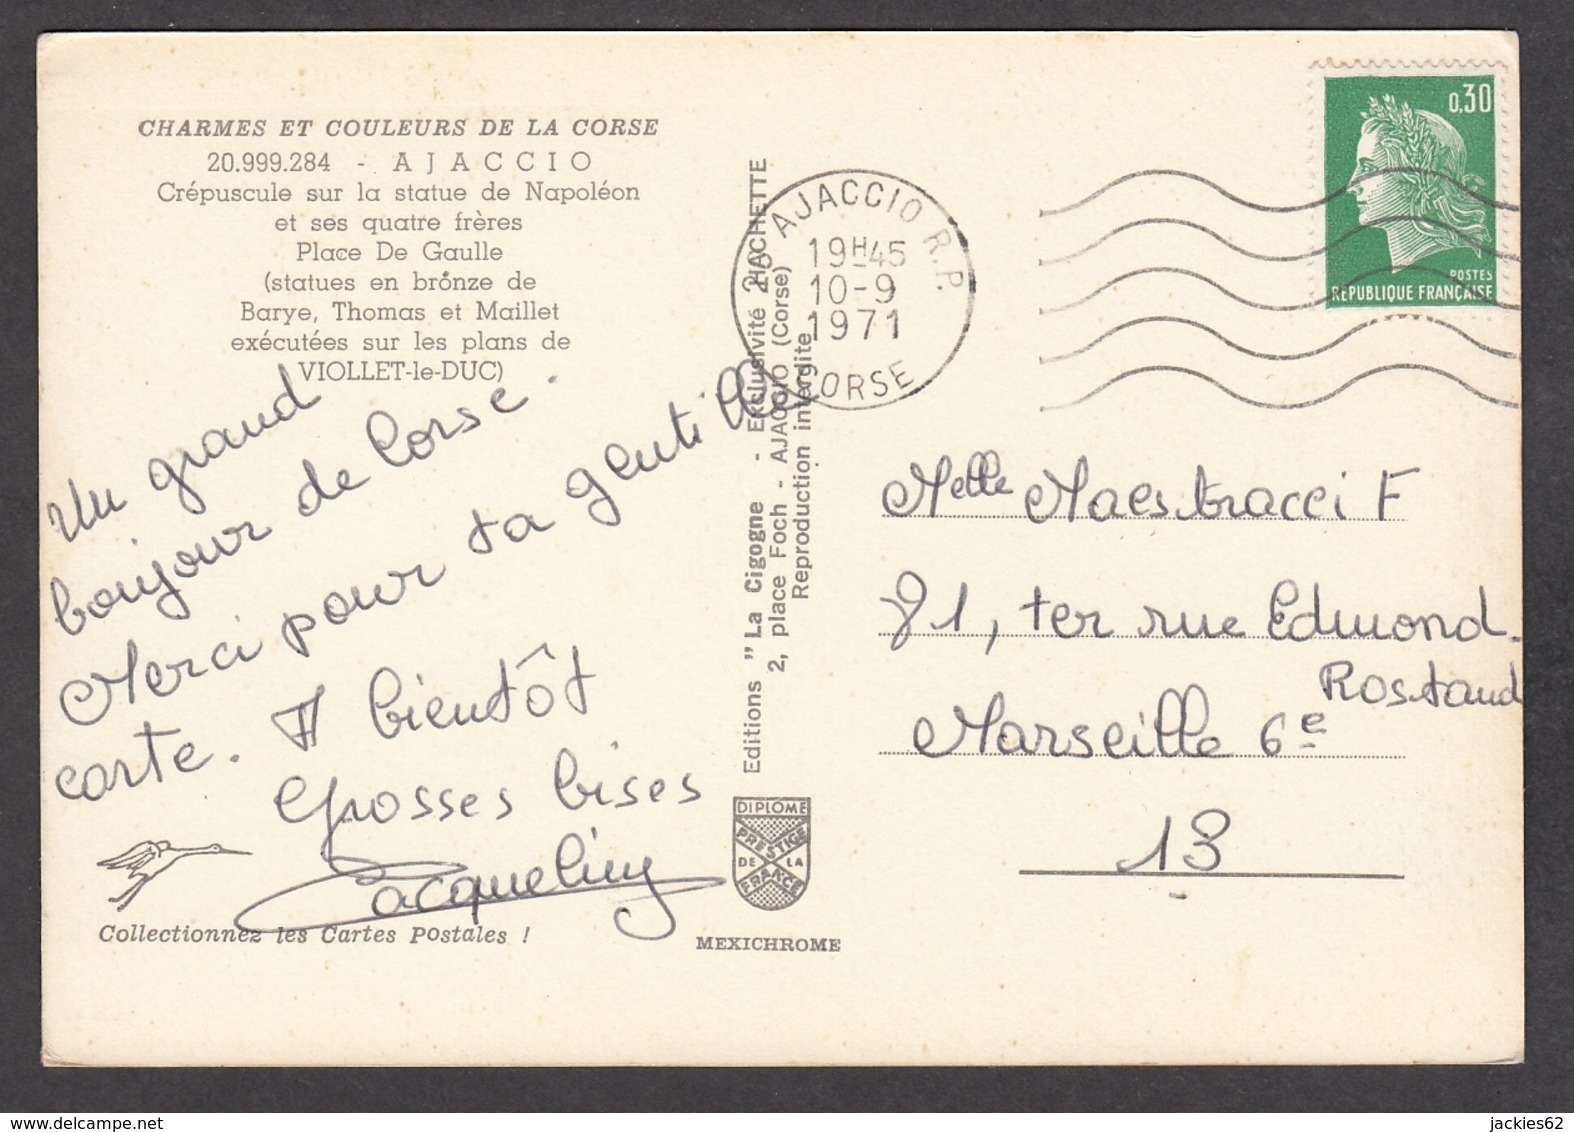 CHARMES ET COULEURS DE LA CORSE
20.999.284 - AJACCIO
Crépuscule sur la statue de Napoléon
et ses quatre frères
Place De Gaulle
(statues en brônze de
Barye, Thomas et Maillet
exécutées sur les plans de
VIOLLET-le-DUC)
Un grand
bonjour de Corse.
Merci pour ta gentille
carte. A bientôt
Grosses bises
Jacqueline
Collectionnez les Cartes Postales !
Editions "La Cigogne - Exclusivité HACHETTE
2, place Foch - AJACCIO (Corse)
Reproduction interdite
DIPLOME
PRESTIGE
DE LA
FRANCE
MEXICHROME
AJACCIO R.P.
19H45
10-9
1971
CORSE
0,30
POSTES
REPUBLIQUE FRANÇAISE
Melle Maestracci F
81, ter rue Edmond
Rostand
Marseille 6e
13
jackies62